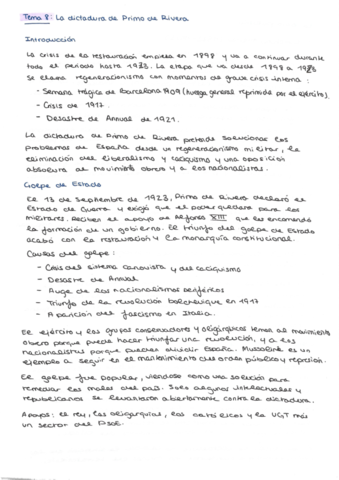 Tema 8: La dictadura de Primo de Rivera
Introducción
La crisis de la restauración empieza en 1898 y va a continuar durante
todo el periodo hasta 1923. La etapa que va desde 1898 a 1923
se llama regeneracionismo con momentos de grave crisis interna:
- Semana trágica de Barcelona 1909 (huelga general reprimida por el ejército).
- Crisis de 1917.
- Desastre de Annual de 1921.
La dictadura de Primo de Rivera pretende solucionar los
problemas de España desde un regeneracionismo militar, la
eliminación del liberalismo y caciquismo y una oposición
absoluta al movimiento obrero y a los nacionalistas.
Golpe de Estado
El 13 de septiembre de 1923, Primo de Rivera declaró el
Estado de Guerra y exigió que el poder quedara para los
militares. Reciben el apoyo de Alfonso XIII que les encomendó
la formación de un gobierno. El triunfo del golpe de Estado
acabó con la restauración y la monarquía constitucional.
Causas del golpe:
- Crisis del sistema canovista y del caciquismo
- Desastre de Annual
- Auge de los nacionalismos periféricos
- Triunfo de la revolución bolchevique en 1917
- Aparición del fascismo en Italia.
El ejército y los grupos conservadores y oligárquicos temen al movimiento
obrero porque puede hacer triunfar una revolución, y a los
nacionalistas porque pueden dividir España. Mussolini es un
ejemplo a seguir en el mantenimiento del orden público y represión.
El golpe fue popular, viéndose como una solución para
remediar los males del país. Solo algunos intelectuales y
republicanos se levantaron abiertamente contra la dictadura.
Apoyos: el rey, las oligarquías, los católicos y la UGT más
un sector del PSOE.